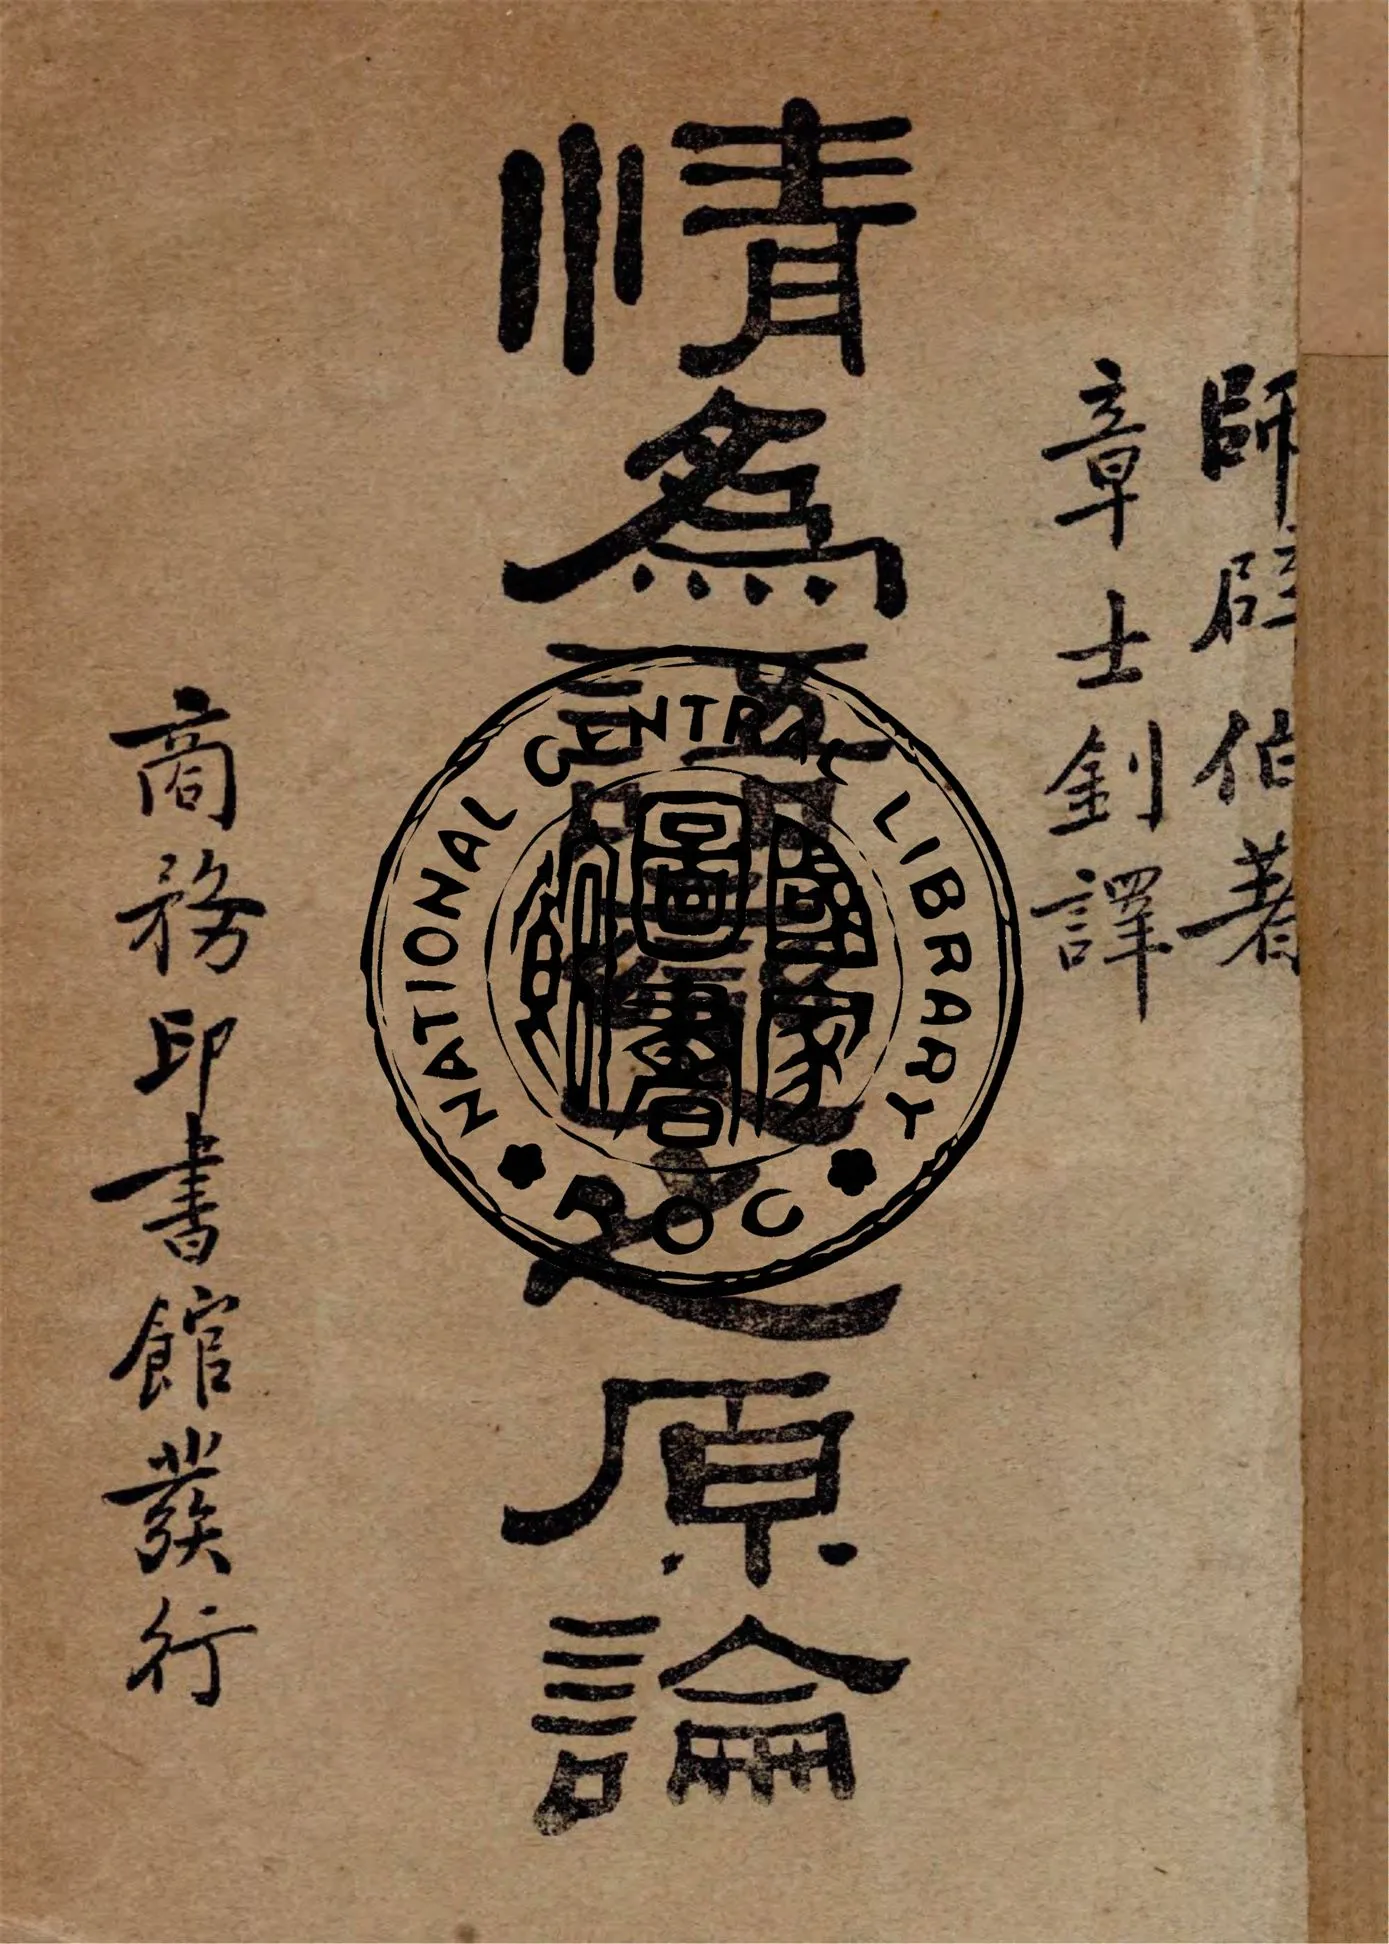 師辟伯著
章士釗譯
情為語變之原論
商務印書館發行
NATIONAL CENTRAL LIBRARY
ROC
國家圖書館